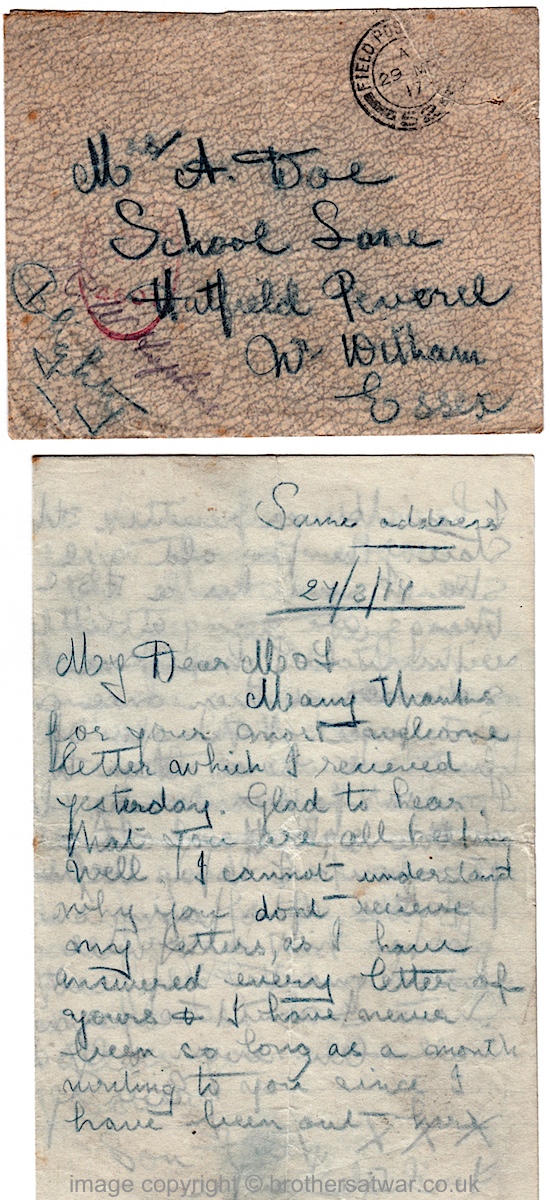 FIELD POS
A
29 M
17
52
Mrs A. Doe
School Lane
Hatfield Peverel
Nr Witham
Essex
Same address
27/3/17
My Dear M & F
Many thanks
for your most welcome
letter which I recieved
yesterday. Glad to hear
that you are all keeping
well. I cannot understand
why you dont receive
my letters, as I have
answered every letter of
yours & I have never
been so long as a month
writing to you since I
have been out here
image copyright © brothersatwar.co.uk